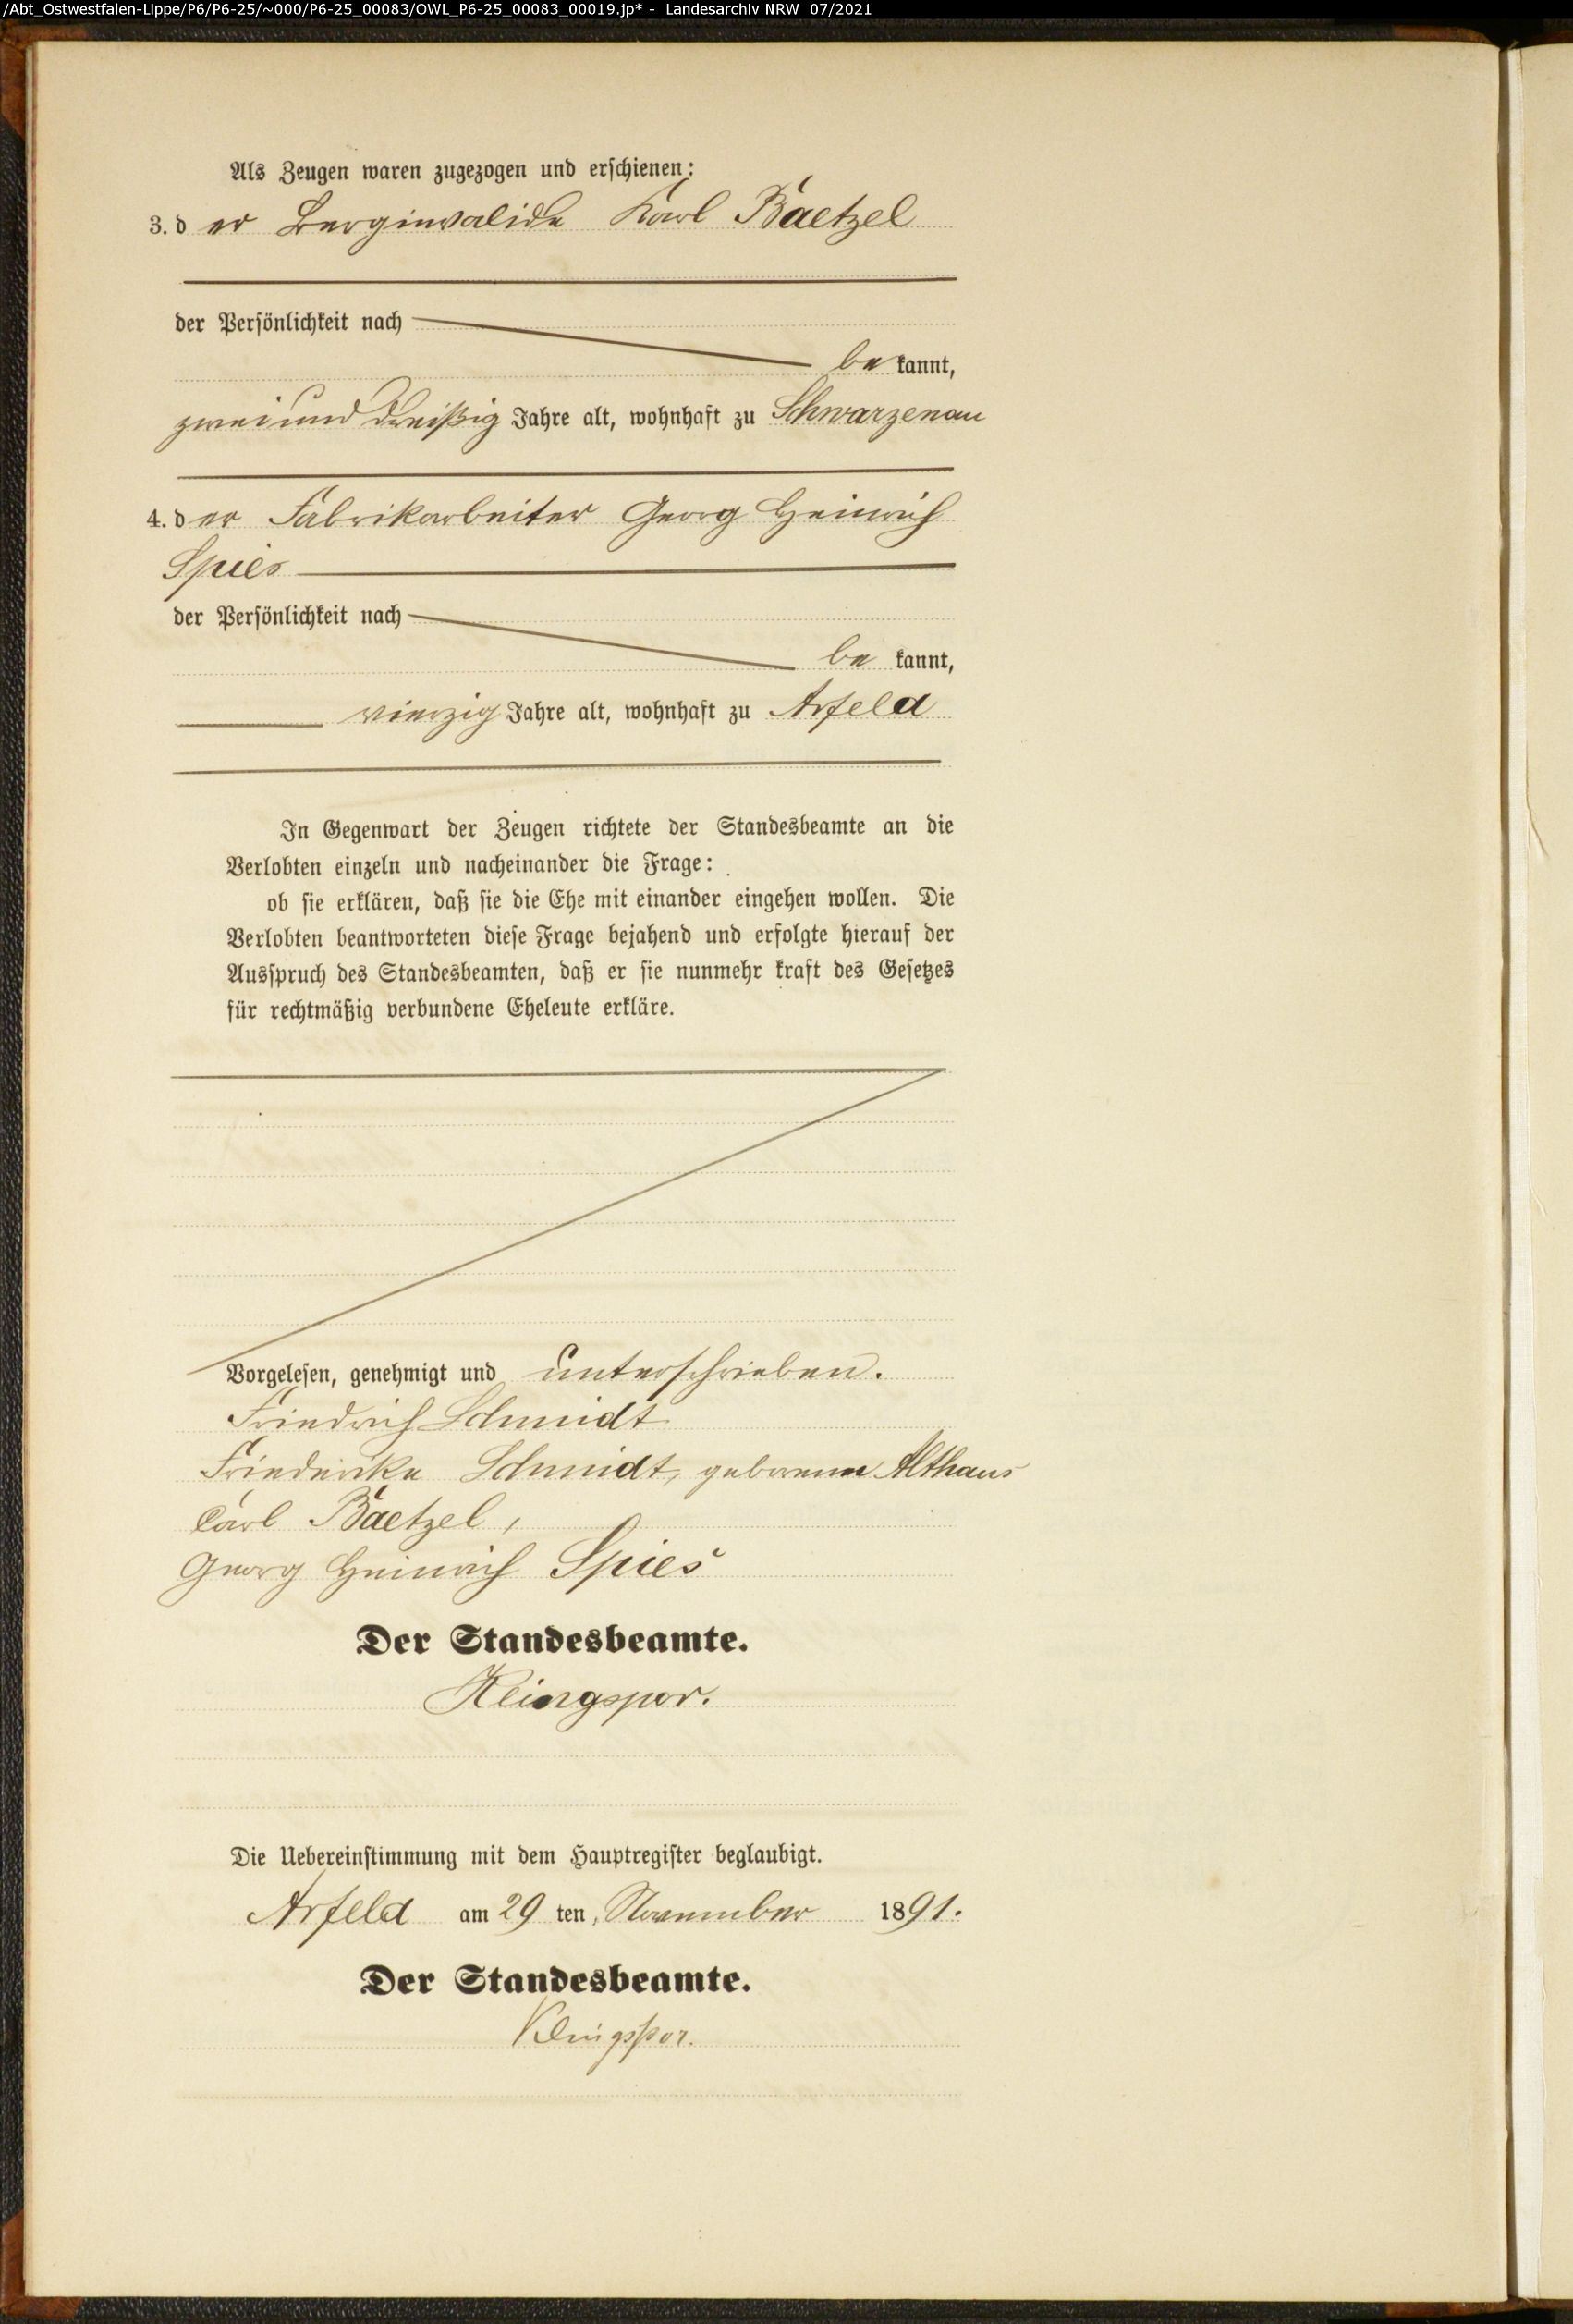 /Abt_Ostwestfalen-Lippe/P6/P6-25/~000/P6-25_00083/OWL_P6-25_00083_00019.jp* - Landesarchiv NRW 07/2021
Als Zeugen waren zugezogen und erschienen:
3. der Berginvalide Karl Baetzel
der Persönlichkeit nach
bekannt,
zweiunddreißig Jahre alt, wohnhaft zu Schwarzenau
4. der Fabrikarbeiter Georg Heinrich
Spies
der Persönlichkeit nach
bekannt,
vierzig Jahre alt, wohnhaft zu Arfeld
In Gegenwart der Zeugen richtete der Standesbeamte an die
Verlobten einzeln und nacheinander die Frage:
ob sie erklären, daß sie die Ehe mit einander eingehen wollen. Die
Verlobten beantworteten diese Frage bejahend und erfolgte hierauf der
Ausspruch des Standesbeamten, daß er sie nunmehr kraft des Gesetzes
für rechtmäßig verbundene Eheleute erkläre.
Vorgelesen, genehmigt und unterschrieben.
Friedrich Schmidt
Friederike Schmidt, geborene Althaus
Carl Baetzel,
Georg Heinrich Spies
Der Standesbeamte.
Klingspor.
Die Uebereinstimmung mit dem Hauptregister beglaubigt.
Arfeld am 29 ten November 1891.
Der Standesbeamte.
Klingspor.